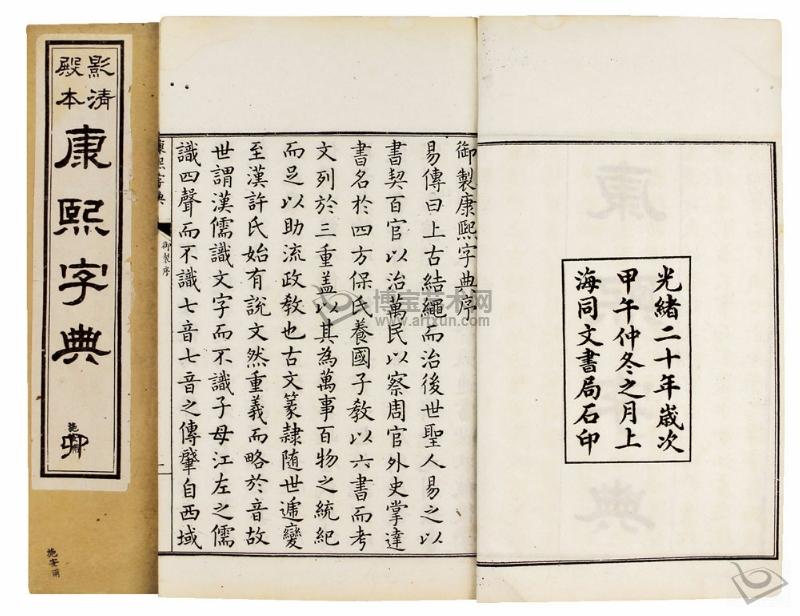 光緒二十年歲次
甲午仲冬之月上
海同文書局石印
御製康熙字典序
易傳曰上古結繩而治後世聖人易之以
書契百官以治萬民以察周官外史掌達
書名於四方保氏養國子教以六書而考
文列於三重蓋以其為萬事百物之統紀
而足以助流政教也古文篆隸隨世遞變
至漢許氏始有說文然重義而略於音故
世謂漢儒識文字而不識子母江左之儒
識四聲而不識七音七音之傳肇自西域
康熙字典
御製序
一
影清
殿本
康熙字典
博宝艺术网
www.artxun.com
康
典